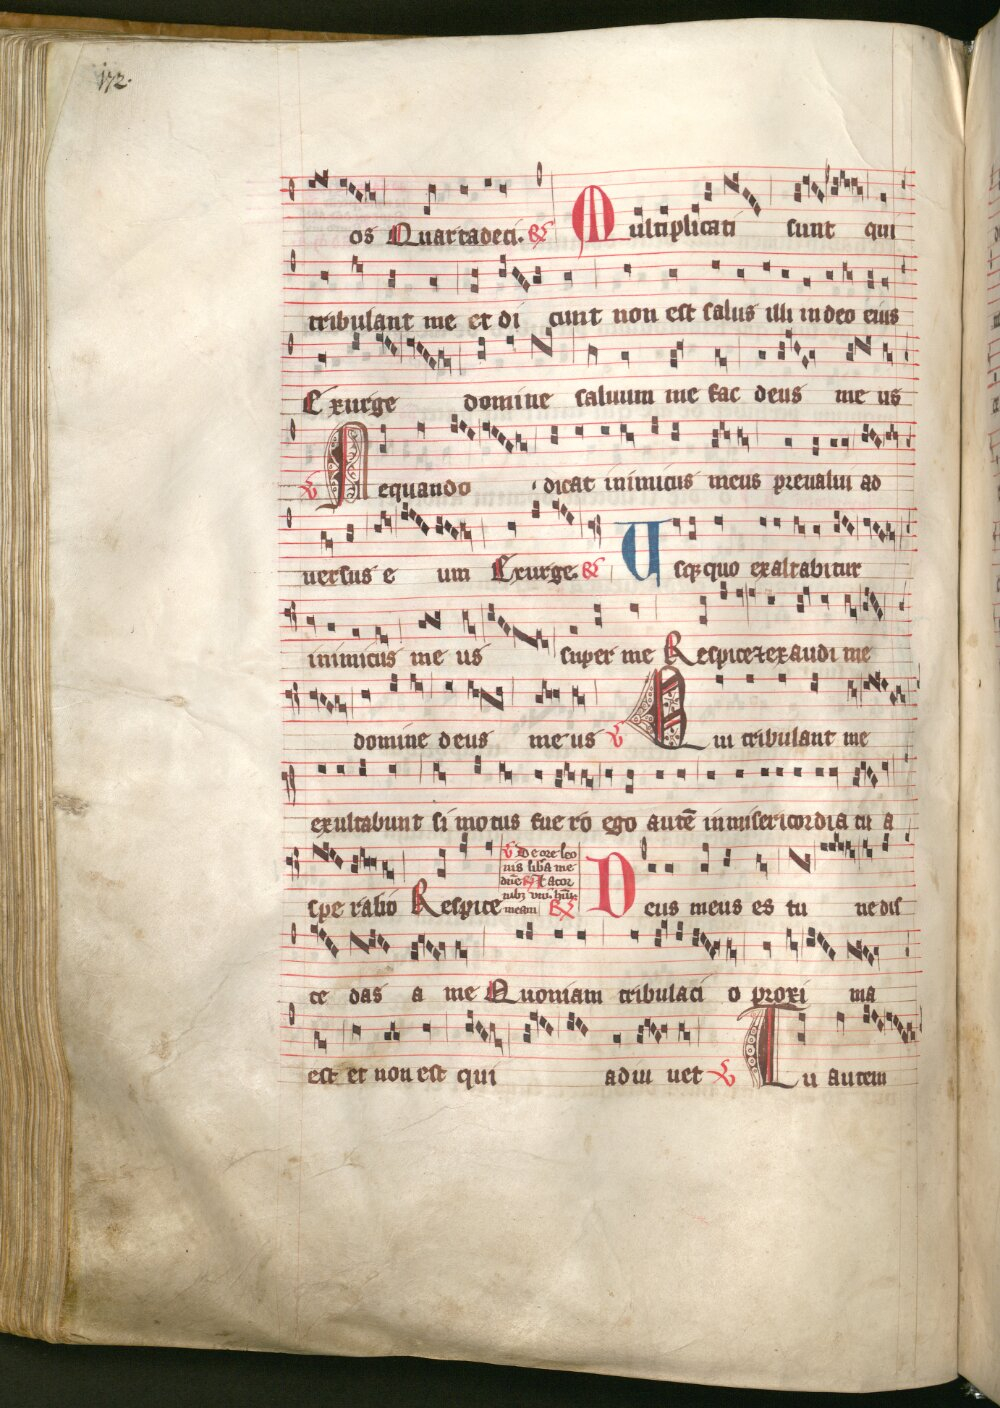 172.
os Quartadeci. R Multiplicati sunt qui
tribulant me et di cunt non est salus illi in deo eius
Exurge domine saluum me fac deus me us
V Nequando dicat inimicus meus preualui ad
uersus e um Exurge. R Usq3 quo exaltabitur
inimicus me us super me Respice ⁊ exaudi me
domine deus me us V Qui tribulant me
exultabunt si motus fue ro ego autē in misericordia tu a
spe rabo Respice
V De ore leo
nis lib'a me
dn̄e ⁊ a cor
nib3 vni. hūil.
meam R Deus meus es tu ne dis
ce das a me Quoniam tribulaci o proxi ma
est et non est qui adiu uet V Tu autem